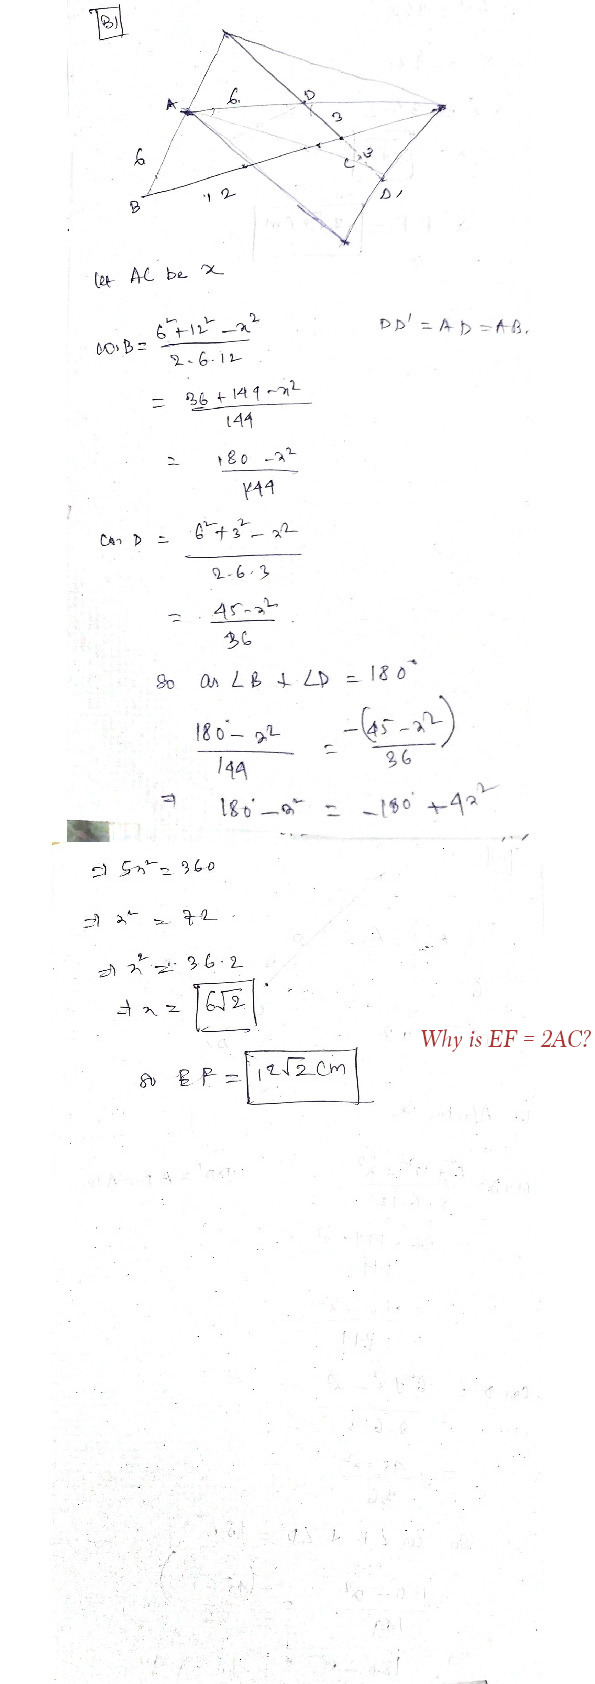 B1
A
6.
D
3
6
C
3
B
12
D'
Let AC be x
cos B = 6² + 12² - x² / 2·6·12
DD' = AD = AB.
= 36 + 144 - x² / 144
= 180 - x² / 144
Cos D = 6² + 3² - x² / 2·6·3
= 45 - x² / 36
So as ∠B + ∠D = 180°
180 - x² / 144 = -(45 - x²) / 36
⇒ 180 - x² = -180 + 4x²
⇒ 5x² = 360
⇒ x² = 72
⇒ x² = 36·2
⇒ x = 6√2
Why is EF = 2AC?
So EF = 12√2 cm